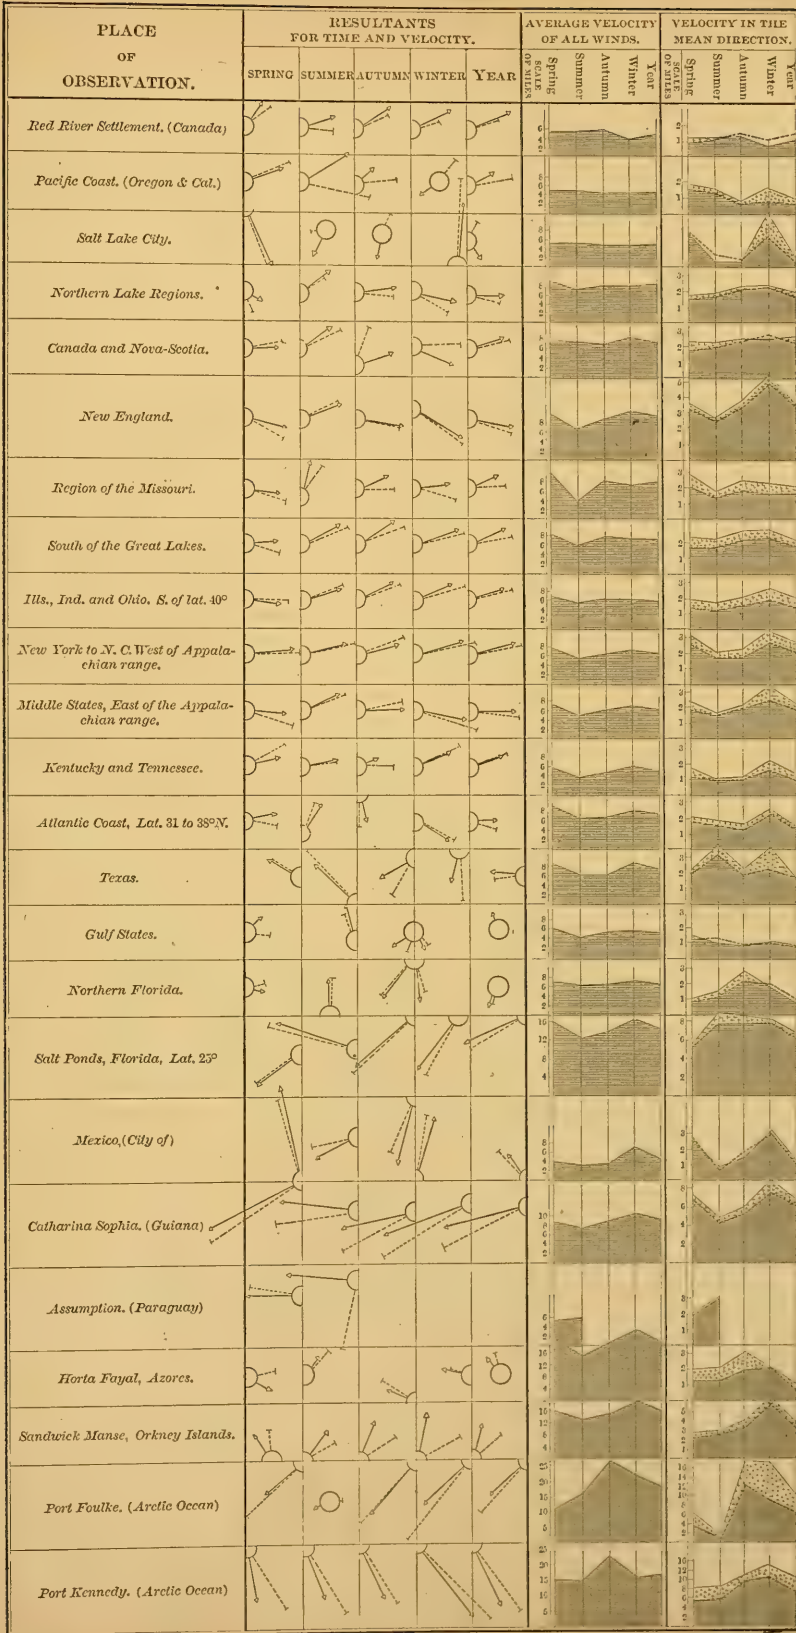 PLACE
OF
OBSERVATION.
RESULTANTS
FOR TIME AND VELOCITY.
SPRING SUMMER AUTUMN WINTER YEAR
AVERAGE VELOCITY
OF ALL WINDS.
SCALE
OF MILES
Spring
Summer
Autumn
Winter
Year
VELOCITY IN THE
MEAN DIRECTION.
SCALE
OF MILES
Spring
Summer
Autumn
Winter
Year
Red River Settlement. (Canada)
Pacific Coast. (Oregon & Cal.)
Salt Lake City.
Northern Lake Regions.
Canada and Nova-Scotia.
New England.
Region of the Missouri.
South of the Great Lakes.
Ills., Ind. and Ohio. S. of lat. 40°
New York to N. C. West of Appala-
chian range.
Middle States, East of the Appala-
chian range.
Kentucky and Tennessee.
Atlantic Coast, Lat. 31 to 38° N.
Texas.
Gulf States.
Northern Florida.
Salt Ponds, Florida, Lat. 25°
Mexico, (City of)
Catharina Sophia. (Guiana)
Assumption. (Paraguay)
Horta Fayal, Azores.
Sandwick Manse, Orkney Islands.
Port Foulke. (Arctic Ocean)
Port Kennedy. (Arctic Ocean)